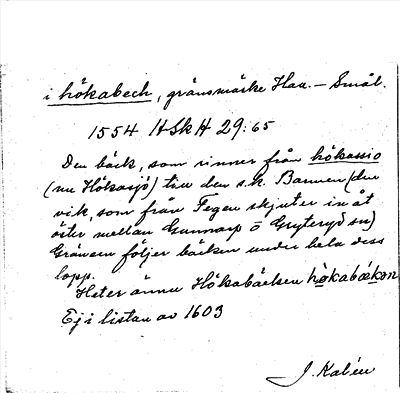 i hökabech, gränsmärke Hall. – Smål.
1554 HSkH 29:65
Den bäck, som rinner från hökassio
(nu Hökasjö) till den s.k. Bannen (den
vik, som från Fegen skjuter in åt
öster mellan Gunnarp o Gryteryd sn)
Gränsen följer bäcken under hela dess
lopp.
Heter ännu Hökabäcken hökabækən
Ej i listan av 1603
J. Kalén